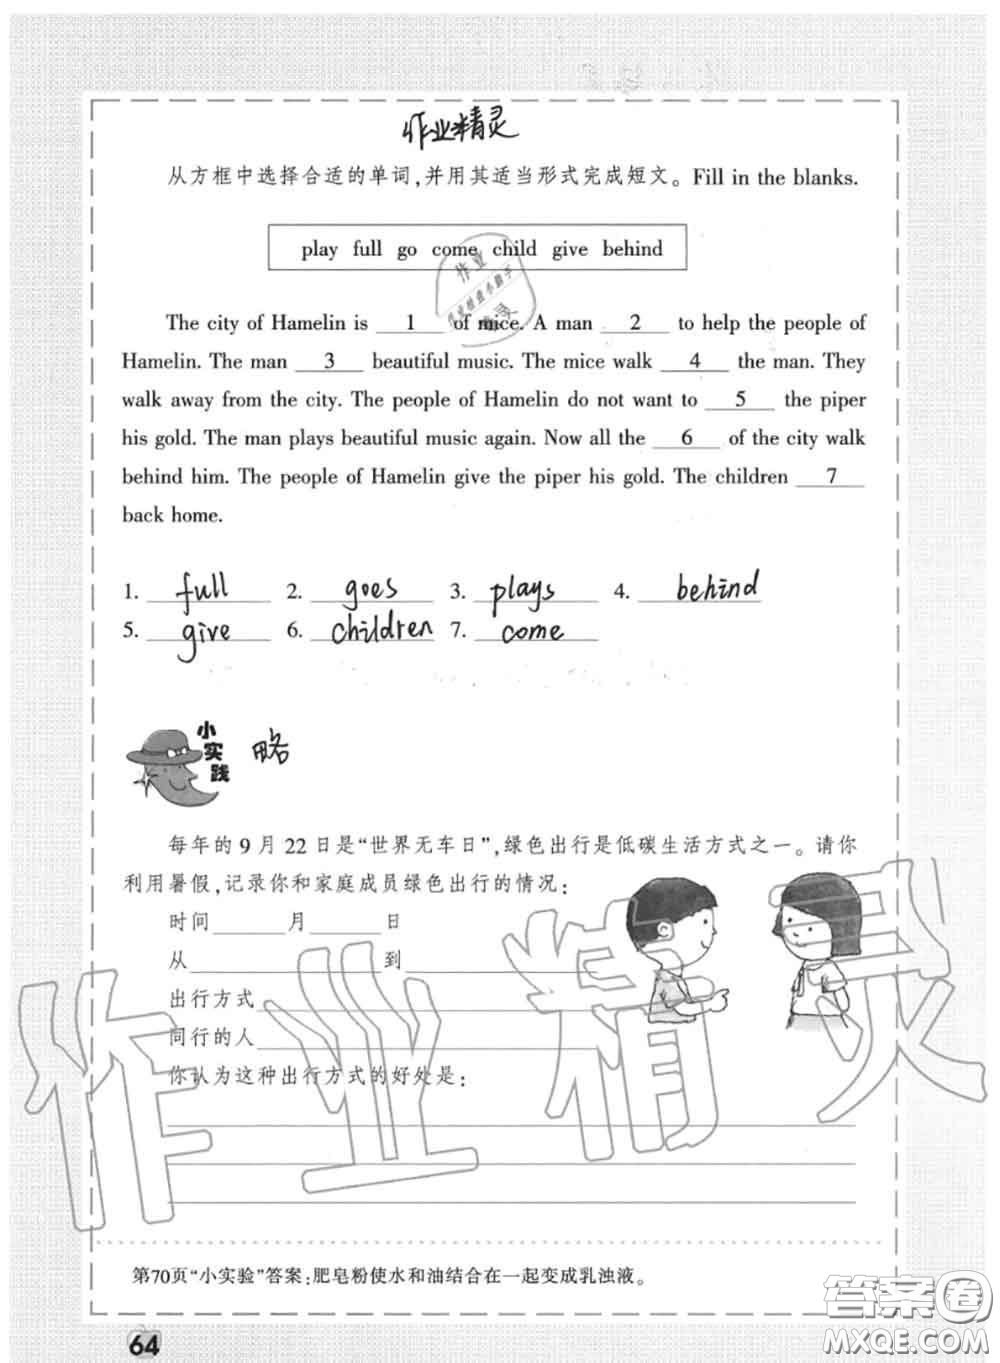 作业精灵
从方框中选择合适的单词,并用其适当形式完成短文。Fill in the blanks.
play full go come child give behind
The city of Hamelin is 1 of mice. A man 2 to help the people of
Hamelin. The man 3 beautiful music. The mice walk 4 the man. They
walk away from the city. The people of Hamelin do not want to 5 the piper
his gold. The man plays beautiful music again. Now all the 6 of the city walk
behind him. The people of Hamelin give the piper his gold. The children 7
back home.
1. full 2. goes 3. plays 4. behind
5. give 6. children 7. come
小实践 略
每年的9月22日是“世界无车日”,绿色出行是低碳生活方式之一。请你
利用暑假,记录你和家庭成员绿色出行的情况:
时间 月 日
从 到
出行方式
同行的人
你认为这种出行方式的好处是:
作业精灵
第70页“小实验”答案:肥皂粉使水和油结合在一起变成乳浊液。
64
答案圈
MXQE.COM